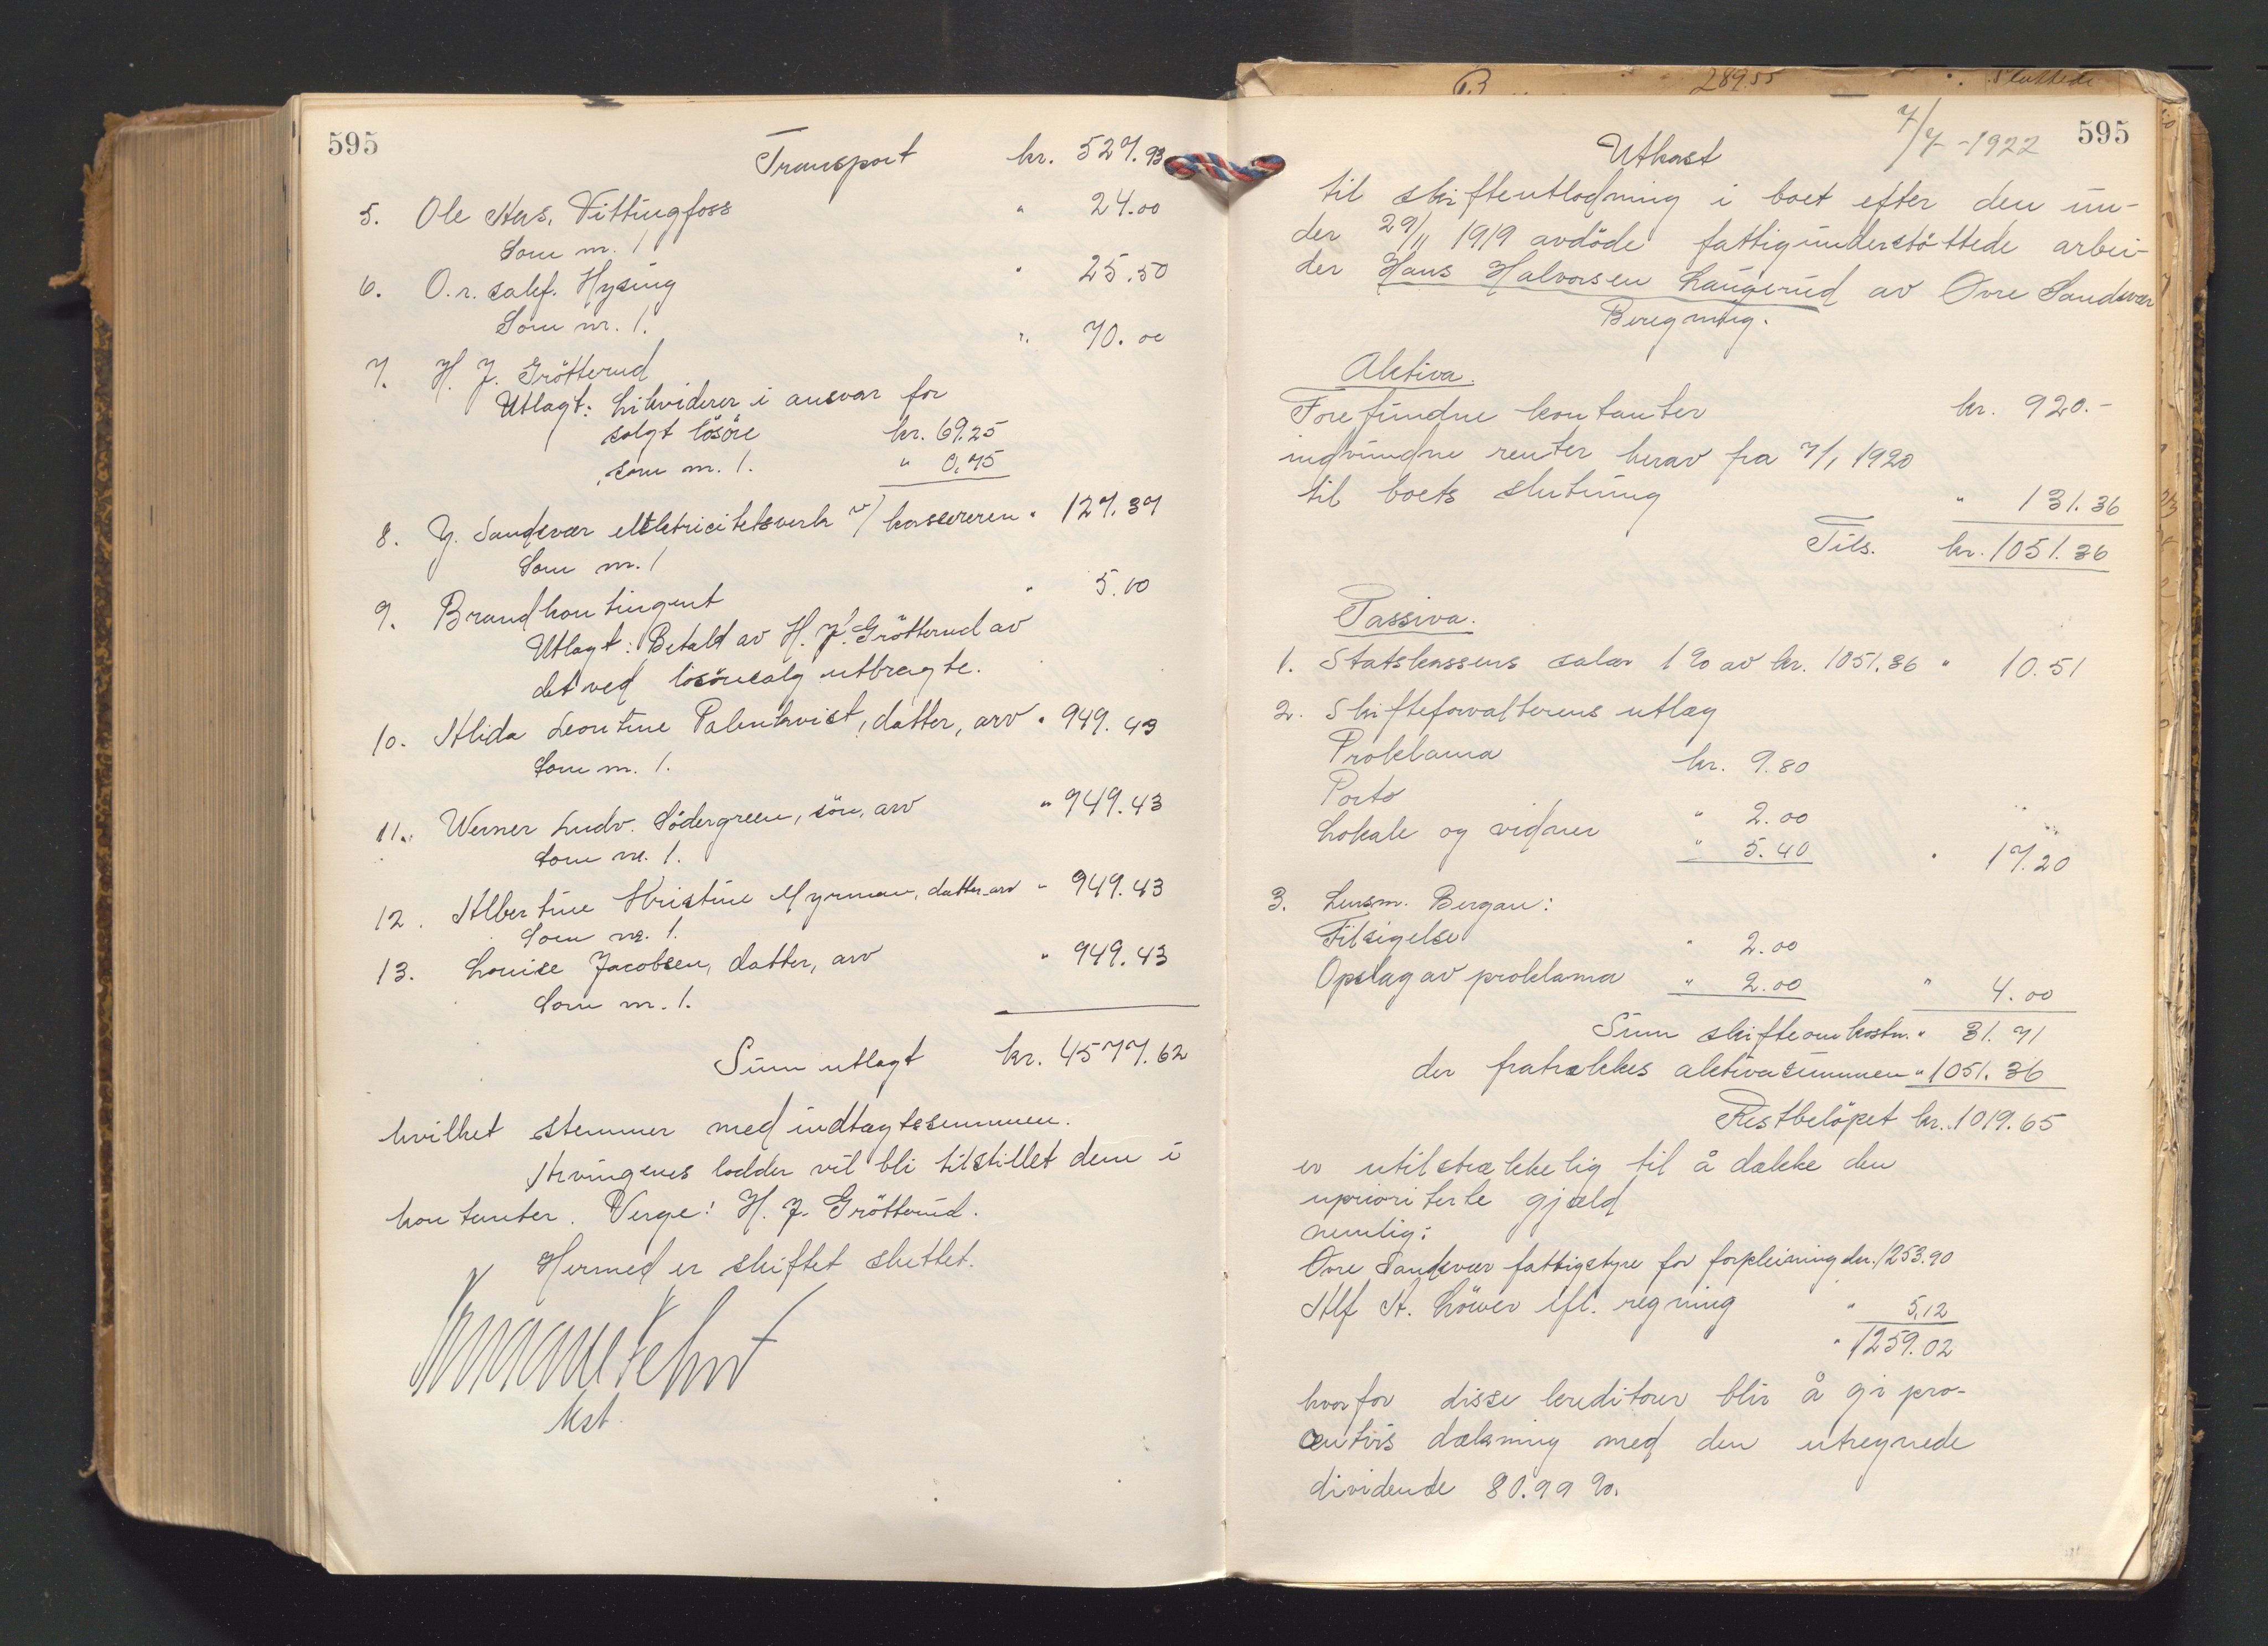 595
Transport kr. 527.93
5. Ole Aas, Vittingfoss " 24.00
Som nr. 1
6. O.r. sakf. Hysing " 25.50
Som nr. 1.
7. H. J. Grötterud " 70.00
Utlagt: Likviderer i ansvar for
solgt lösöre kr. 69.25
som nr. 1. " 0,75
8. Y. Sandsvær elektricitetsverk v/ kassereren " 127.37
Som nr. 1
9. Brandkontingent " 5.00
Utlagt: Betalt av H. J. Grötterud av
det ved lösöresalg utbragte.
10. Alida Leontine Palmkvist, datter, arv " 949.43
Som nr. 1.
11. Werner Ludv. Södergreen, sön, arv " 949.43
Som nr. 1.
12. Albertine Kristine Myrman, datter, arv " 949.43
Som nr. 1.
13. Louise Jacobsen, datter, arv " 949.43
Som nr. 1.
Sum utlagt kr. 4577.62
hvilket stemmer med indtægtssummen.
Arvingenes lodder vil bli tilstillet dem i
kontanter. Verge: H. J. Grötterud.
Hermed er skiftet sluttet.
kst.
289.55 Sluttede
7/7-1922 595
Utkast
til skifteutlodning i boet efter den un-
der 29/11 1919 avdöde fattigunderstöttede arbei-
der Hans Halvorsen Laugerud av Øvre Sandsvær
Beregning.
Aktiva.
Forefundne kontanter kr. 920.-
indvundne renter herav fra 7/1 1920
til boets slutning " 131.36
Tils. kr. 1051.36
Passiva.
1. Statskassens salær 1% av kr. 1051.36 " 10.51
2. Skifteforvalterens utlæg
Proklama kr. 9.80
Porto " 2.00
Lokale og vidner " 5.40 " 17.20
3. Lensm. Bergan:
Tilsigelse " 2.00
Opslag av proklama " 2.00 " 4.00
Sum skifteomkostn. " 31.71
der fratrækkes aktivasummen " 1051.36
Restbelöpet kr. 1019.65
er utilstrækkelig til å dække den
uprioriterte gjæld
nemlig:
Øvre Sandsvær fattigstyre for forpleining kr. 1253.90
Alf A. Löwer ifl. regning " 5,12
" 1259.02
hvorfor disse kreditorer blir å gi pro-
centvis dækning med den utregnede
dividende 80.99 %.